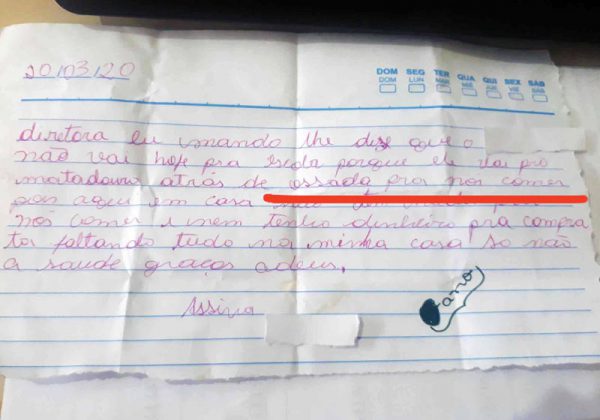 10/03/20
DOM SEG TER QUA QUI SEX SÁB
DOM LUN MAR MIÉ JUE VIE SAB
diretora eu mando lhe dize que o
não vai hoje pra porque ele vai pro
matadouro atrás de ossada pra nos comer
pois aqui em casa não tem nada pra
nós comer e nem tenho dinheiro pra compra
ta faltando tudo na minha casa so não
a saude graças adeus.
Assina